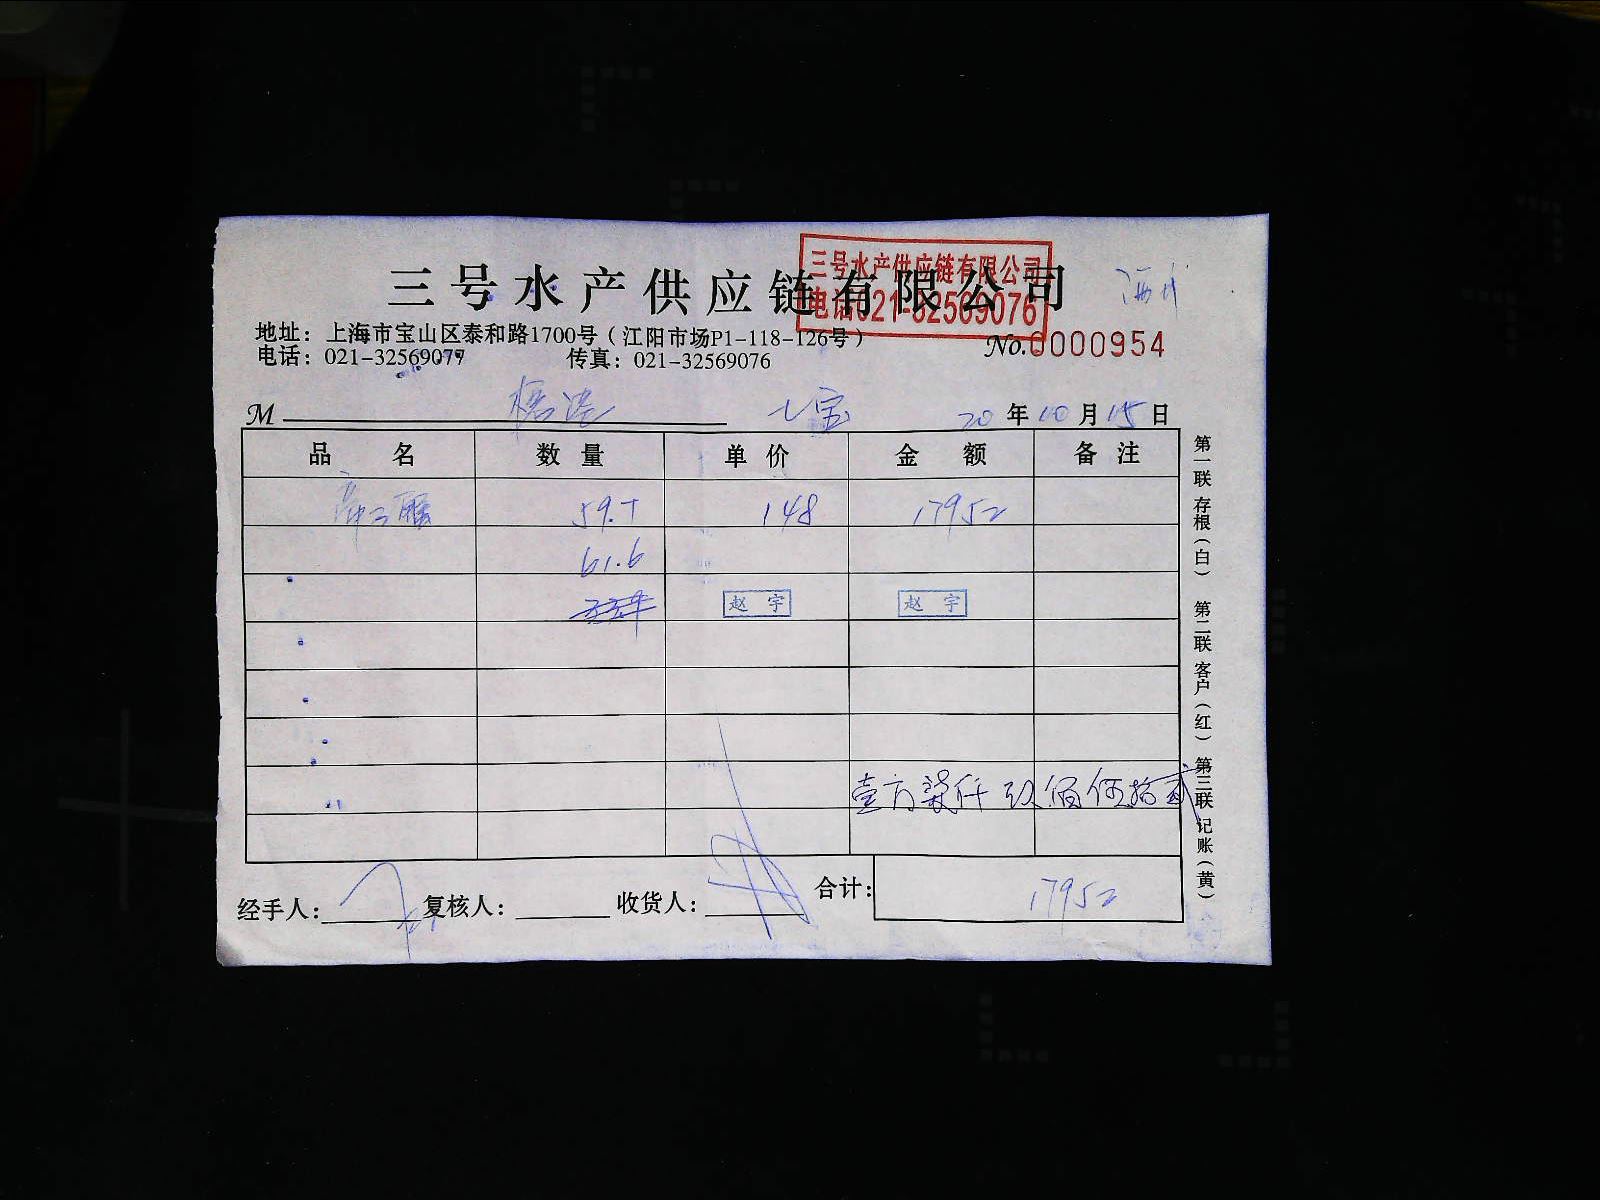 三号水产供应链有限公司
三号水产供应链有限公司
电话021-32569076
地址：上海市宝山区泰和路1700号（江阳市场P1-118-126号）
电话：021-32569077 传真：021-32569076
No.0000954
M 七宝 20年10月15日
品名 数量 单价 金额 备注
59.7 148 17952
61.6
赵宇 赵宇
壹万柒仟玖佰伍拾贰
经手人： 复核人： 收货人： 合计：17952
第一联 存根（白） 第二联 客户（红） 第三联 记账（黄）